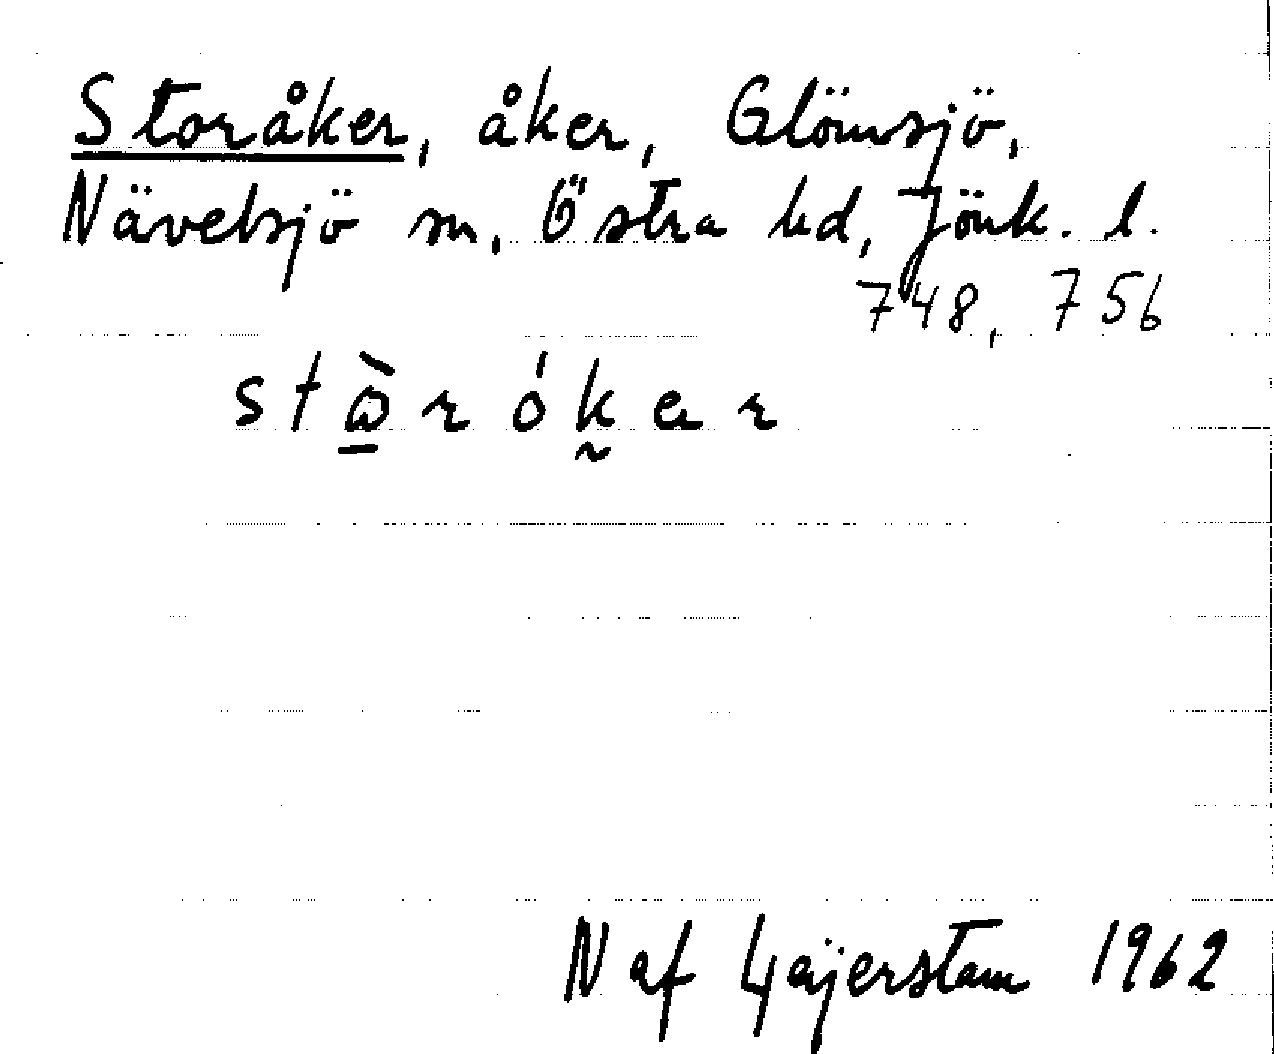 Storåker, åker, Glömsjö,
Nävelsjö sn, Östra hd, Jönk. l.
748, 756
stὼ̲r ó k̰ e r
N af Gejerstam 1962